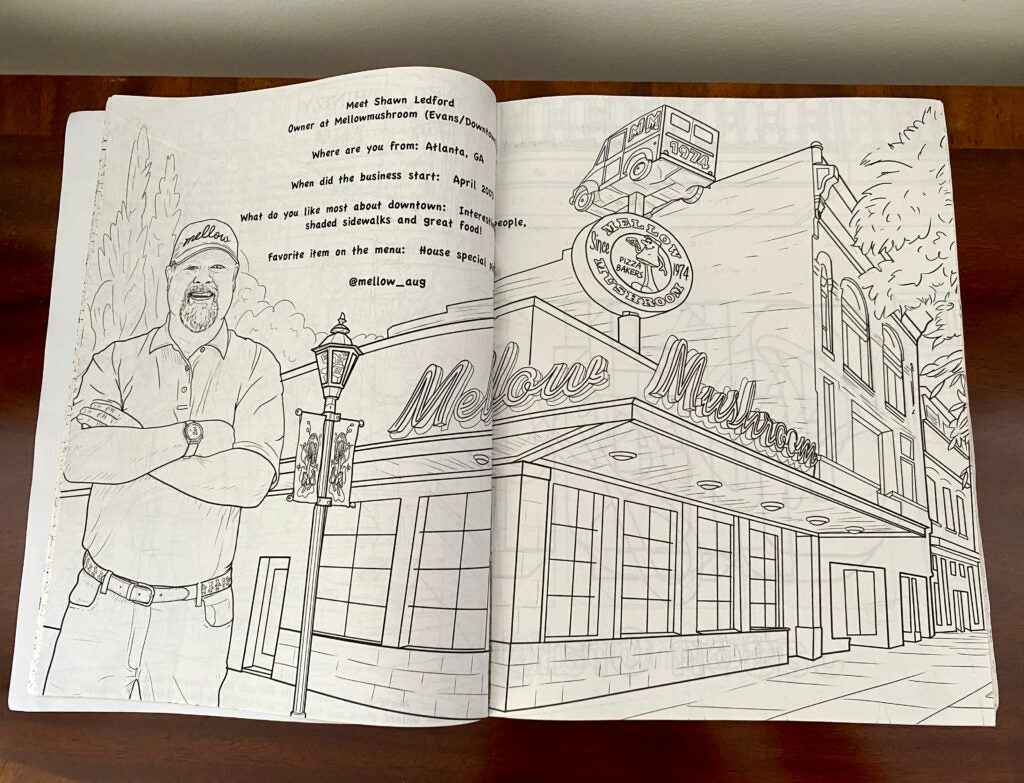 Meet Shawn Ledford
Owner at Mellowmushroom (Evans/Downtown
Where are you from: Atlanta, GA
When did the business start: April
What do you like most about downtown: people,
shaded sidewalks and great food!
Favorite item on the menu: House special
@mellow_aug
mellow
MM
1974
MELLOW
Since
PIZZA
BAKERS
1974
MUSHROOM
Mellow
Mushroom